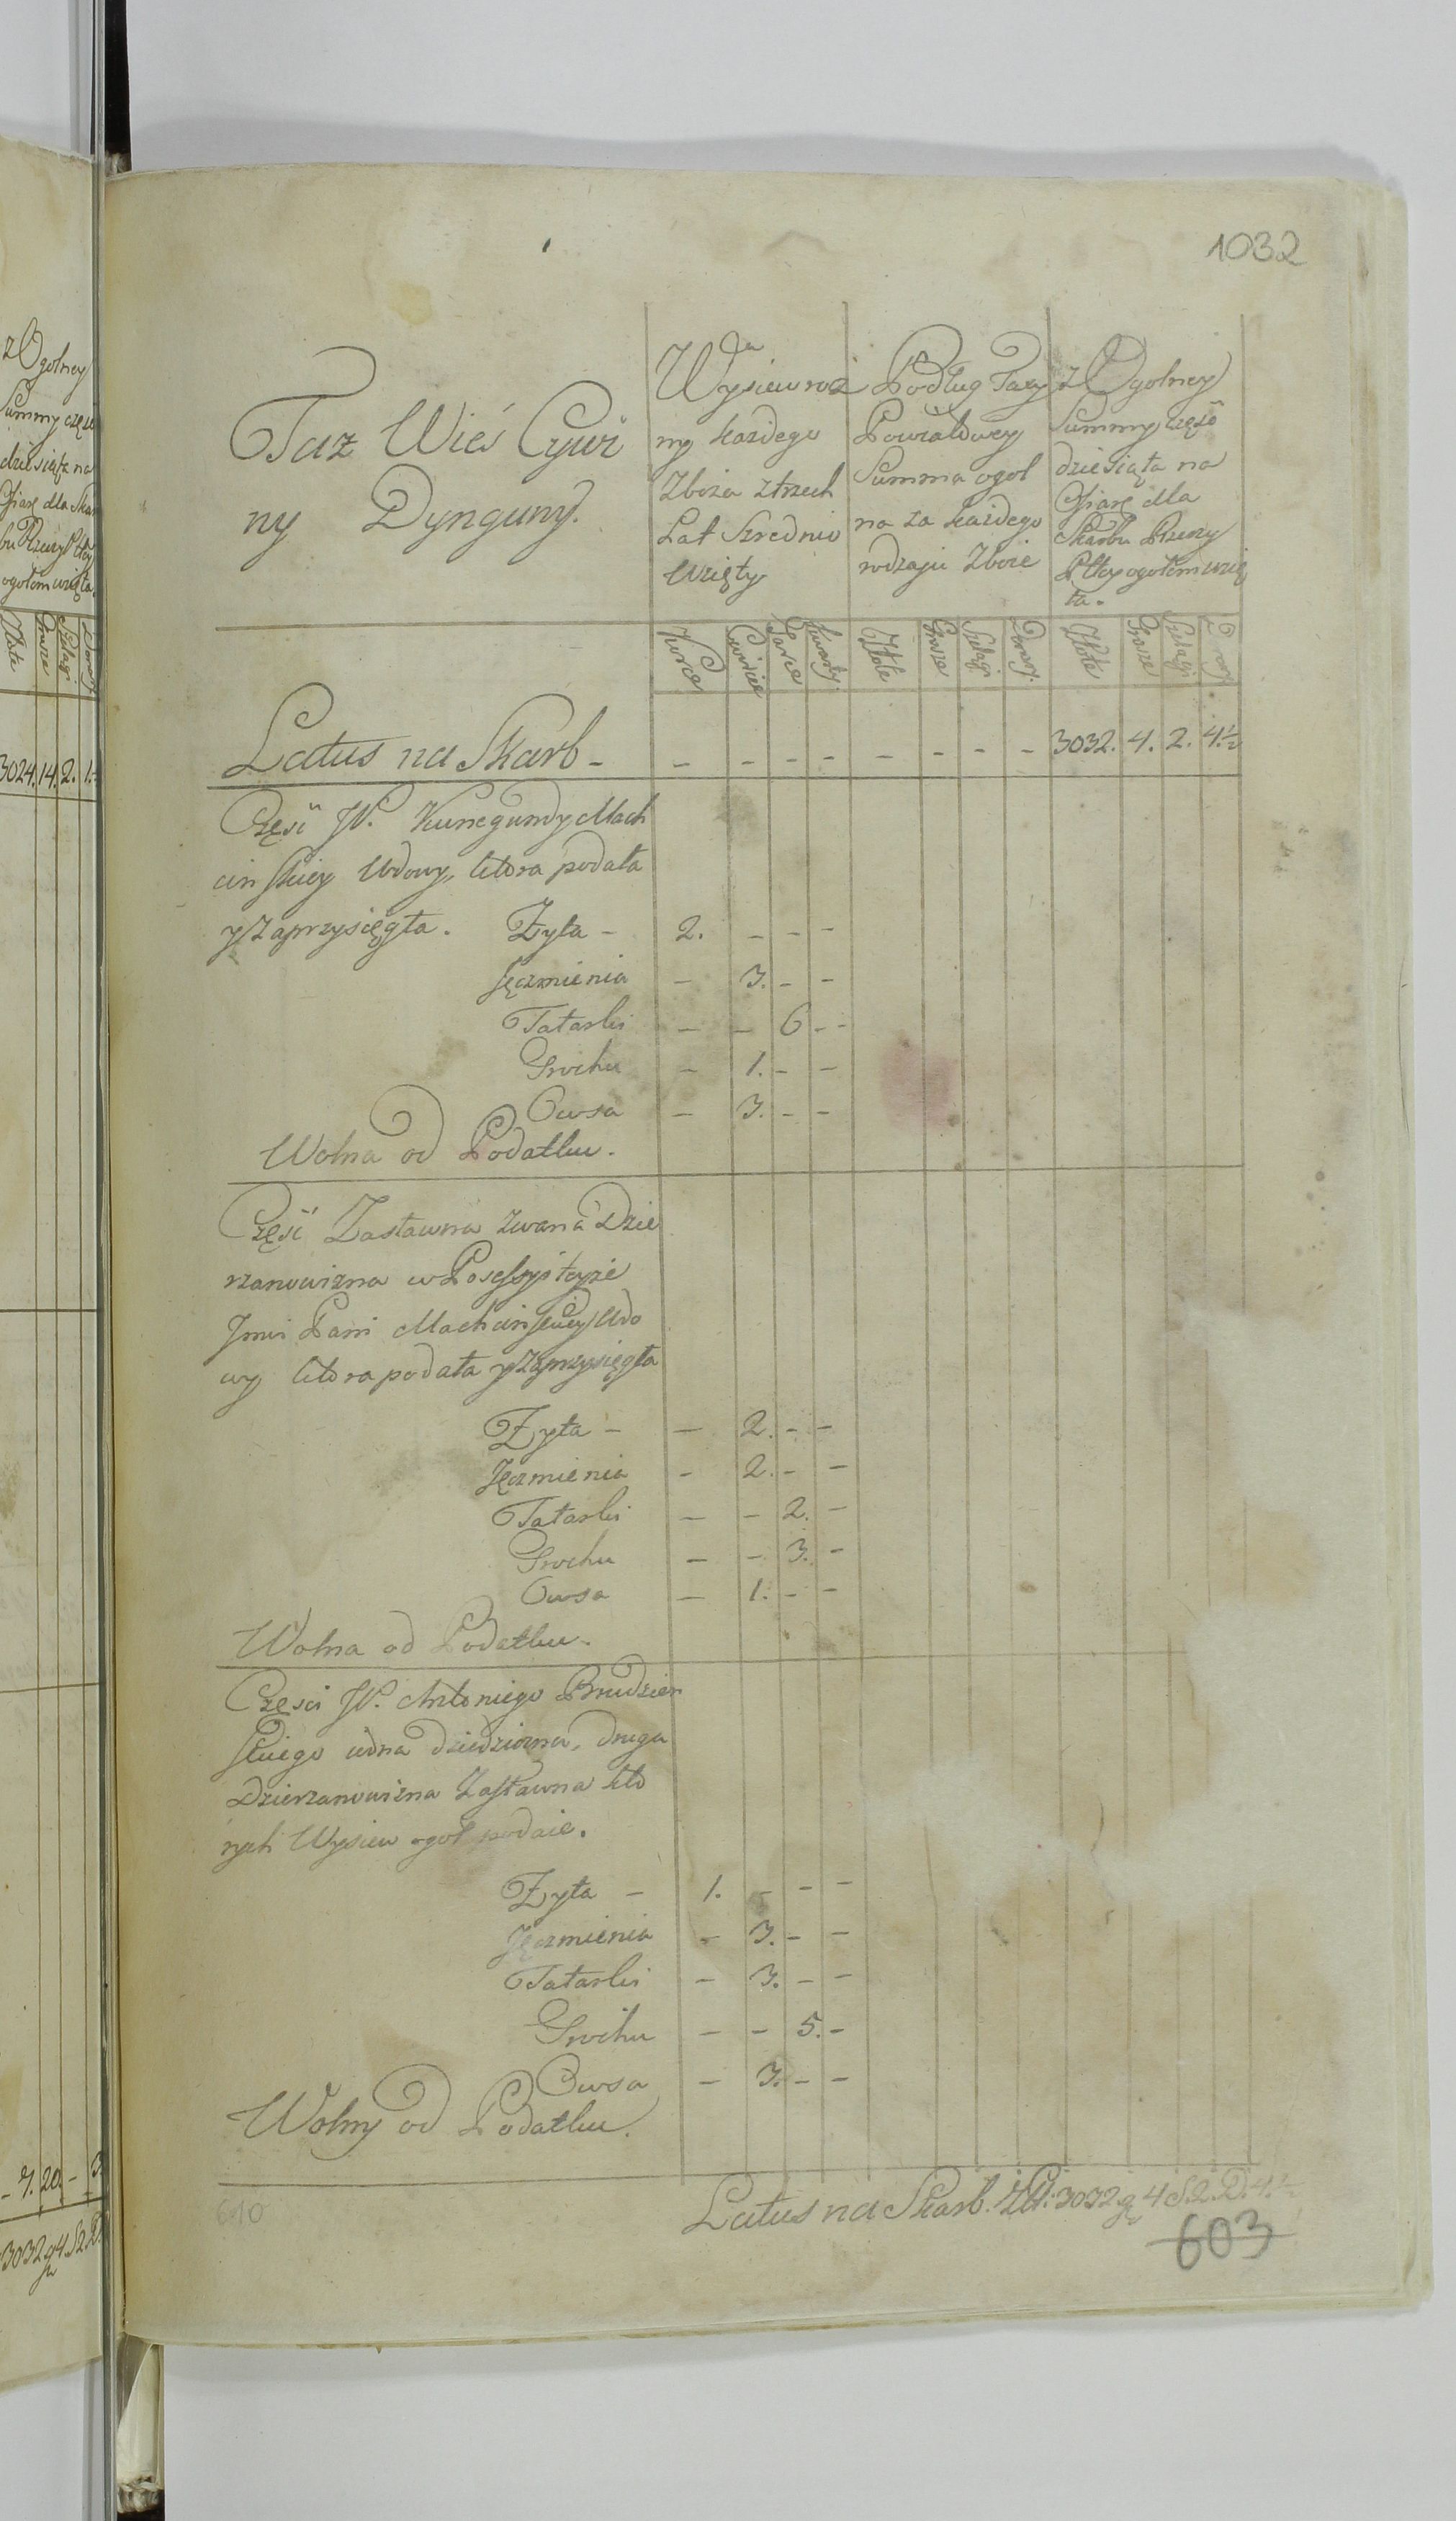 z Ogolney
Summy częśc
dziesiąta na
Ofiarę dla Skar
bu Rzeczy Pltey
ogołem wzięta.
Złote Grosze Szelągi Denary
3024. 14. 2. 1.
- 7. 20. - 3
3032 gr 4 S 2. D.
1032
Taz Wieś Cywi
ny Dynguny.
Wysiew rocz
ny każdego
Zboża z trzech
Lat Srednio
wzięty
Podług Taxy
Powiatowey
Summa ogol
na za każdego
rodzaju Zboże
z Ogolney
Summy część
dziesiąta na
Ofiarę dla
Skarbu Rzeczy
Pltey ogołem wzię
ta.
Korce Cwierce Garce Kwarty. Złote Grosze Szelągi Denary. Złote Grosze Szelągi Denary
Latus na Skarb - - - - - - - - - 3032. 4. 2. 4.½
Część W. Kunegundy Mach
cinskiey Wdowy, ktora podała
y zaprzysięgła. Zyta - 2. - - -
Jęczmienia - 3. - -
Tatarki - - 6 - -
Grochu - 1. - -
Owsa - 3. - -
Wolna od Podatku.
Część Zastawna zwana Dzie
rzanowizna w Possessyi teyże
Jmci Pani Machcinskiey Wdo
wy ktora podała y zaprzysięgła
Zyta - - 2. - -
Jęczmienia - 2. - -
Tatarki - - 2. -
Grochu - - 3. -
Owsa - 1. - -
Wolna od Podatku.
Części W. Antoniego Brudzień
skiego iedna dziedziczna, druga
Dzierzanowizna Zastawna kto
rych Wysiew ogoł podaie.
Zyta - 1. - - -
Jęczmienia - 3. - -
Tatarki - 3. - -
Grochu - - 5. -
Owsa - 3. - -
Wolny od Podatku.
Latus na Skarb. Zł: 3032 gr 4 S. 2. D. 4.½
610
603